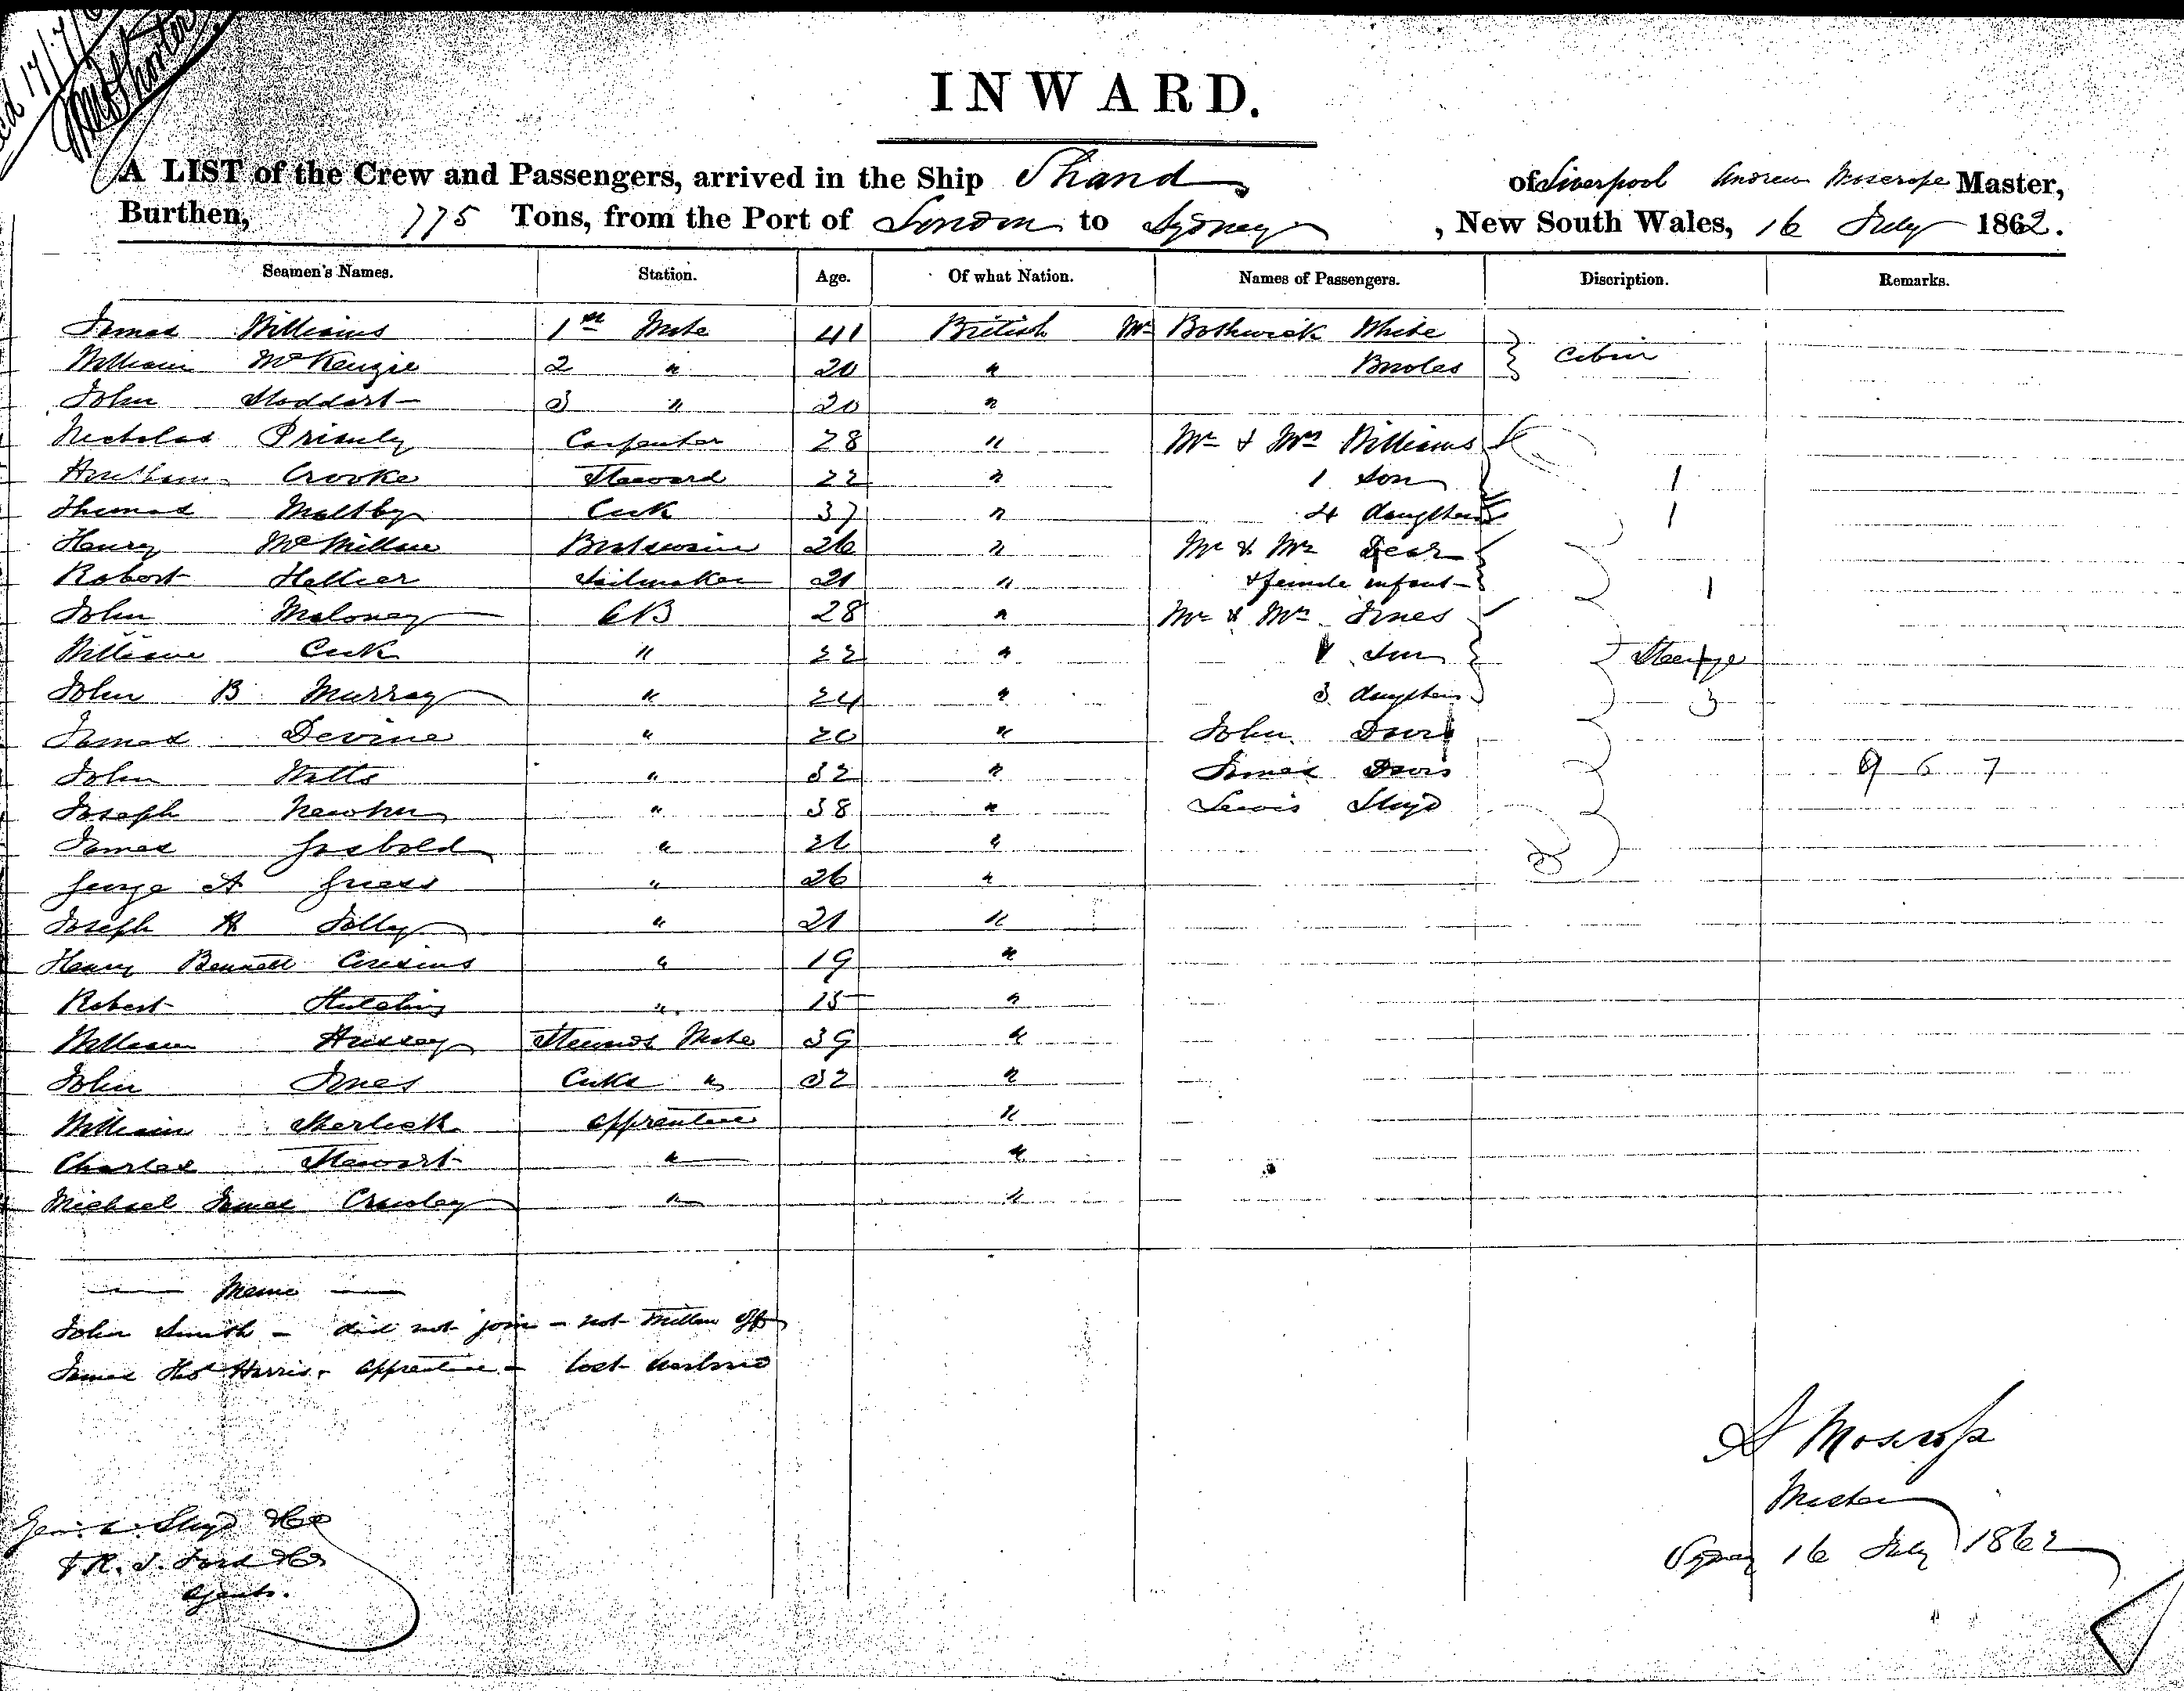 INWARD.
A LIST of the Crew and Passengers, arrived in the Ship Shand of Liverpool Andrew Moscrope Master,
Burthen, 775 Tons, from the Port of London to Sydney, New South Wales, 16 July 1862.
Seamen's Names. Station. Age. Of what Nation. Names of Passengers. Discription. Remarks.
James Williams 1st Mate 41 British Mr Bothwick White
William McKenzie 2 " 20 " Cabin
John Stoddart 3 " 20 "
Nicholas Carpenter 28 " Mr & Mrs Williams
Crooke Steward 22 " 1 son 1
Thomas Maltby Cook 37 " 4 daughters 1
Henry McMillan Boatswain 26 " Mr & Mrs Dear
Robert Hellier Sailmaker 21 " & female infant 1
John Maloney AB 28 " Mr & Mrs Jones
William Cook " 22 " 1 son Steerage
John B Murray " 24 " 3 daughters 3
James Devine " 20 " John Davis
John Watts " 32 " James Davis 9 6 7
Joseph " 38 " Lewis Lloyd
James " "
George A " 26 "
Joseph Jolly " 21 "
Henry Bennett Cousins " 19 "
Robert Hutchins " 15 "
William Hussey Stewards Mate 39 "
John Jones Cooks " 32 "
William Sherlock apprentice "
Charles Stewart " "
Michael James Crowley " "
Memo
John Smith - did not join - not off
James Thos Harris - apprentice - lost overboard
A Moscrop
Master
Sydney 16 July 1862
Lloyd & Co
& R. J. Ford & Co
Agents.